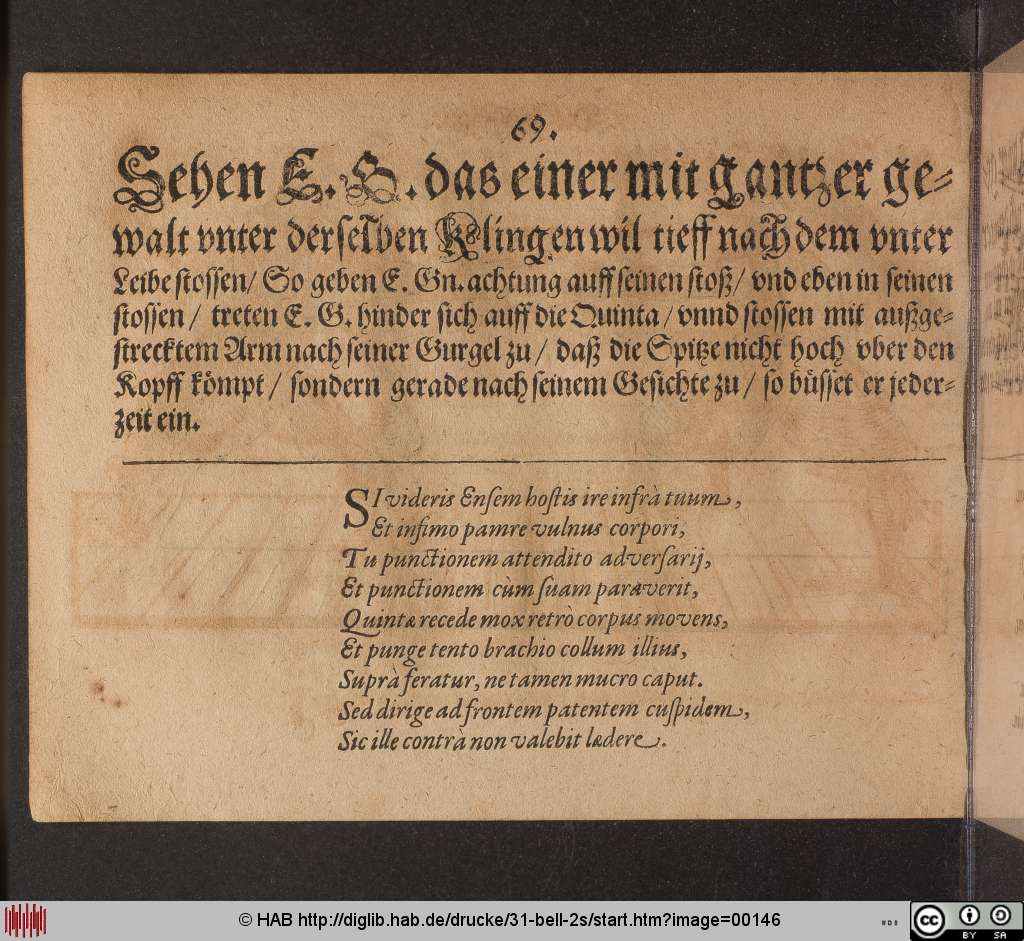 69.
Sehen E. G. das einer mit gantzer ge-
walt vnter derselben Klingen wil tieff nach dem vnter
Leibe stossen/ So geben E. Gn. achtung auff seinen stoß/ vnd eben in seinen
stossen/ treten E. G. hinder sich auff die Quinta/ vnnd stossen mit außge-
strecktem Arm nach seiner Gurgel zu/ daß die Spitze nicht hoch vber den
Kopff kömpt/ sondern gerade nach seinem Gesichte zu/ so büsset er jeder-
zeit ein.
SI videris Ensem hostis ire infrà tuum,
Et infimo pamre vulnus corpori,
Tu punctionem attendito adversarij,
Et punctionem cùm suam paraverit,
Quintæ recede mox retrò corpus movens,
Et punge tento brachio collum illius,
Suprà feratur, ne tamen mucro caput.
Sed dirige ad frontem patentem cuspidem,
Sic ille contrà non valebit lædere.
© HAB http://diglib.hab.de/drucke/31-bell-2s/start.htm?image=00146
cc BY SA